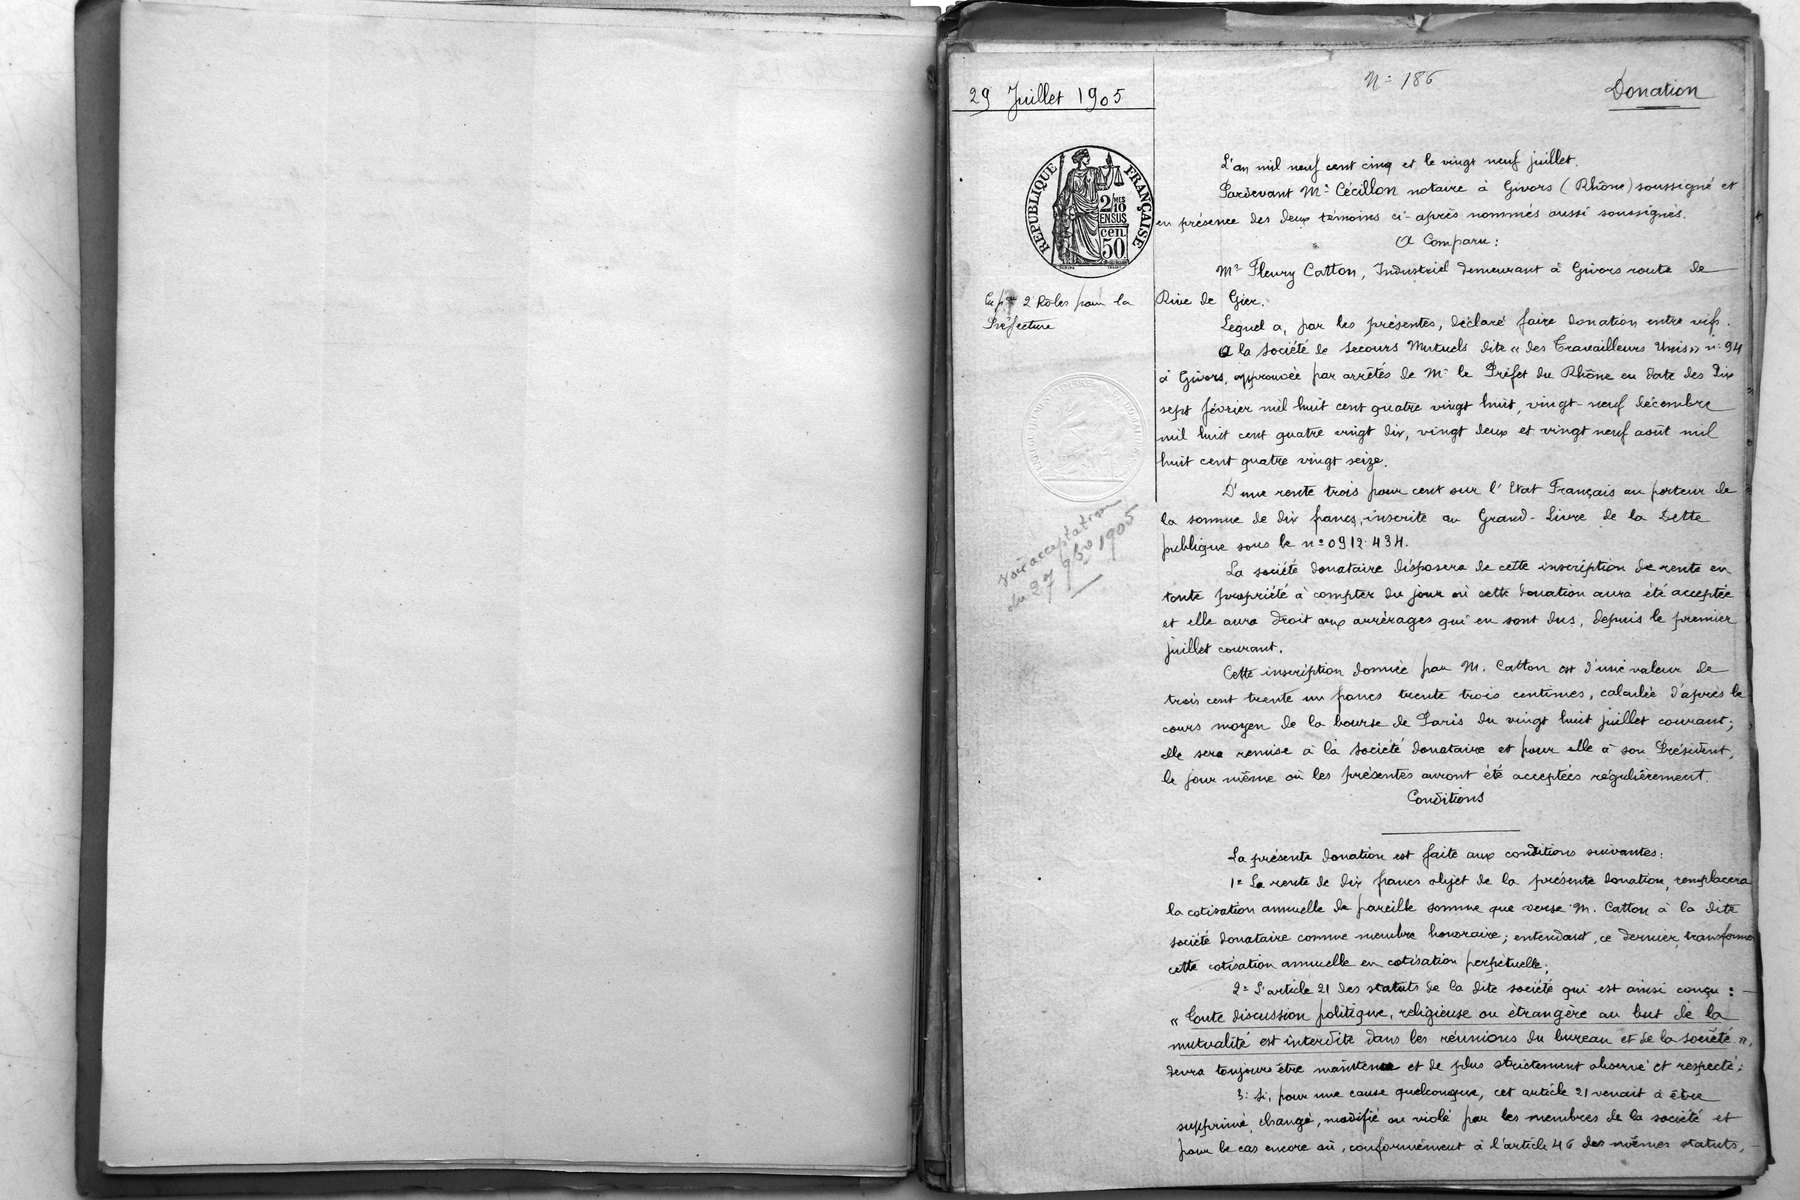 29 Juillet 1905
N° 186
Donation
REPUBLIQUE FRANÇAISE
2 MES
10
EN SUS
cen.
50
Exp.on 2 Roles pour la
Préfecture
Voir acceptation
du 27 9bre 1905
L'an mil neuf cent cinq et le vingt neuf juillet.
Pardevant Me Cécillon notaire à Givors (Rhône) soussigné et
en présence des deux témoins ci-après nommés aussi soussignés.
A Comparu:
Mr Fleury Catton, Industriel demeurant à Givors route de
Rive de Gier.
Lequel a, par les présentes, déclaré faire donation entre vifs.
A la Société de Secours Mutuels dite « des Travailleurs Unis » n° 94
à Givors, approuvée par arrêtés de Mr le Préfet du Rhône en date des Dix
sept février mil huit cent quatre vingt huit, vingt-neuf décembre
mil huit cent quatre vingt dix, vingt deux et vingt neuf août mil
huit cent quatre vingt seize.
D'une rente trois pour cent sur l'Etat Français au porteur de
la somme de dix francs, inscrite au Grand-Livre de la Dette
publique sous le n° 0912.434.
La société donataire disposera de cette inscription de rente en
toute propriété à compter du jour où cette donation aura été acceptée
et elle aura droit aux arrérages qui en sont dus, depuis le premier
juillet courant.
Cette inscription donnée par M. Catton est d'une valeur de
trois cent trente un francs trente trois centimes, calculée d'après le
cours moyen de la bourse de Paris du vingt huit juillet courant;
elle sera remise à la société donataire et pour elle à son Président,
le jour même où les présentes auront été acceptées régulièrement.
Conditions
La présente donation est faite aux conditions suivantes:
1° La rente de dix francs objet de la présente donation, remplacera
la cotisation annuelle de pareille somme que verse M. Catton à la dite
société donataire comme membre honoraire; entendant, ce dernier, transformer
cette cotisation annuelle en cotisation perpétuelle;
2° L'article 21 des statuts de la dite société qui est ainsi conçu:
« Toute discussion politique, religieuse ou étrangère au but de la
mutualité est interdite dans les réunions du bureau et de la société »,
devra toujours être maintenu et de plus strictement observé et respecté;
3° Si, pour une cause quelconque, cet article 21 venait à être
supprimé, changé, modifié ou violé par les membres de la société et
pour le cas encore où, conformément à l'article 46 des mêmes statuts,